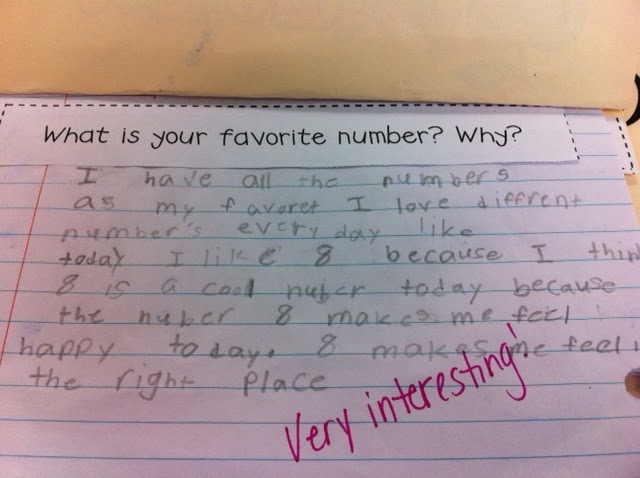 What is your favorite number? Why?
I have all the numbers
as my favoret I love diffrent
number's every day like
today I like 8 because I thin
8 is a cool nuber today because
the nuber 8 makes me feel
happy today. 8 makes me feel i
the right place
Very interesting!